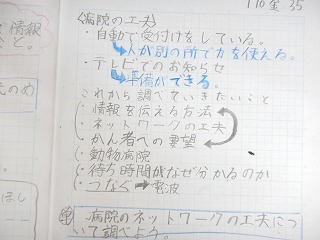 110金 35
〈病院の工夫〉
・自動で受付けをしている。
↳人が別の所で力を使える。
・テレビでのお知らせ
↳準備ができる。
これから調べていきたいこと
・情報を伝える方法
・ネットワークの工夫
・かん者への要望
・動物病院
・待ち時間がなぜ分かるのか
・つなぐ→電波
病院のネットワークの工夫につ
いて調べよう。
情報
と。